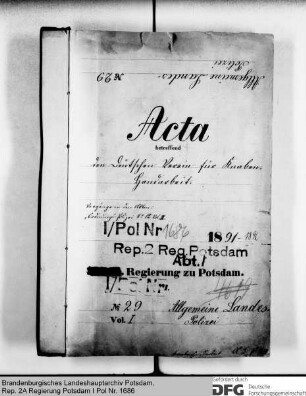 Allgemeine Landes-
Polizei
№ 29
Acta
betreffend
den Deutschen Verein für Knaben-
Handarbeit.
I/Pol Nr 1686
1891-
Rep. 2 Reg Potsdam
Abt. I
Regierung zu Potsdam.
№ 29
Allgemeine Landes-
Vol. I
Polizei
Brandenburgisches Landeshauptarchiv Potsdam,
Rep. 2A Regierung Potsdam I Pol Nr. 1686
Gefördert durch
DFG
Deutsche
Forschungsgemeinschaft